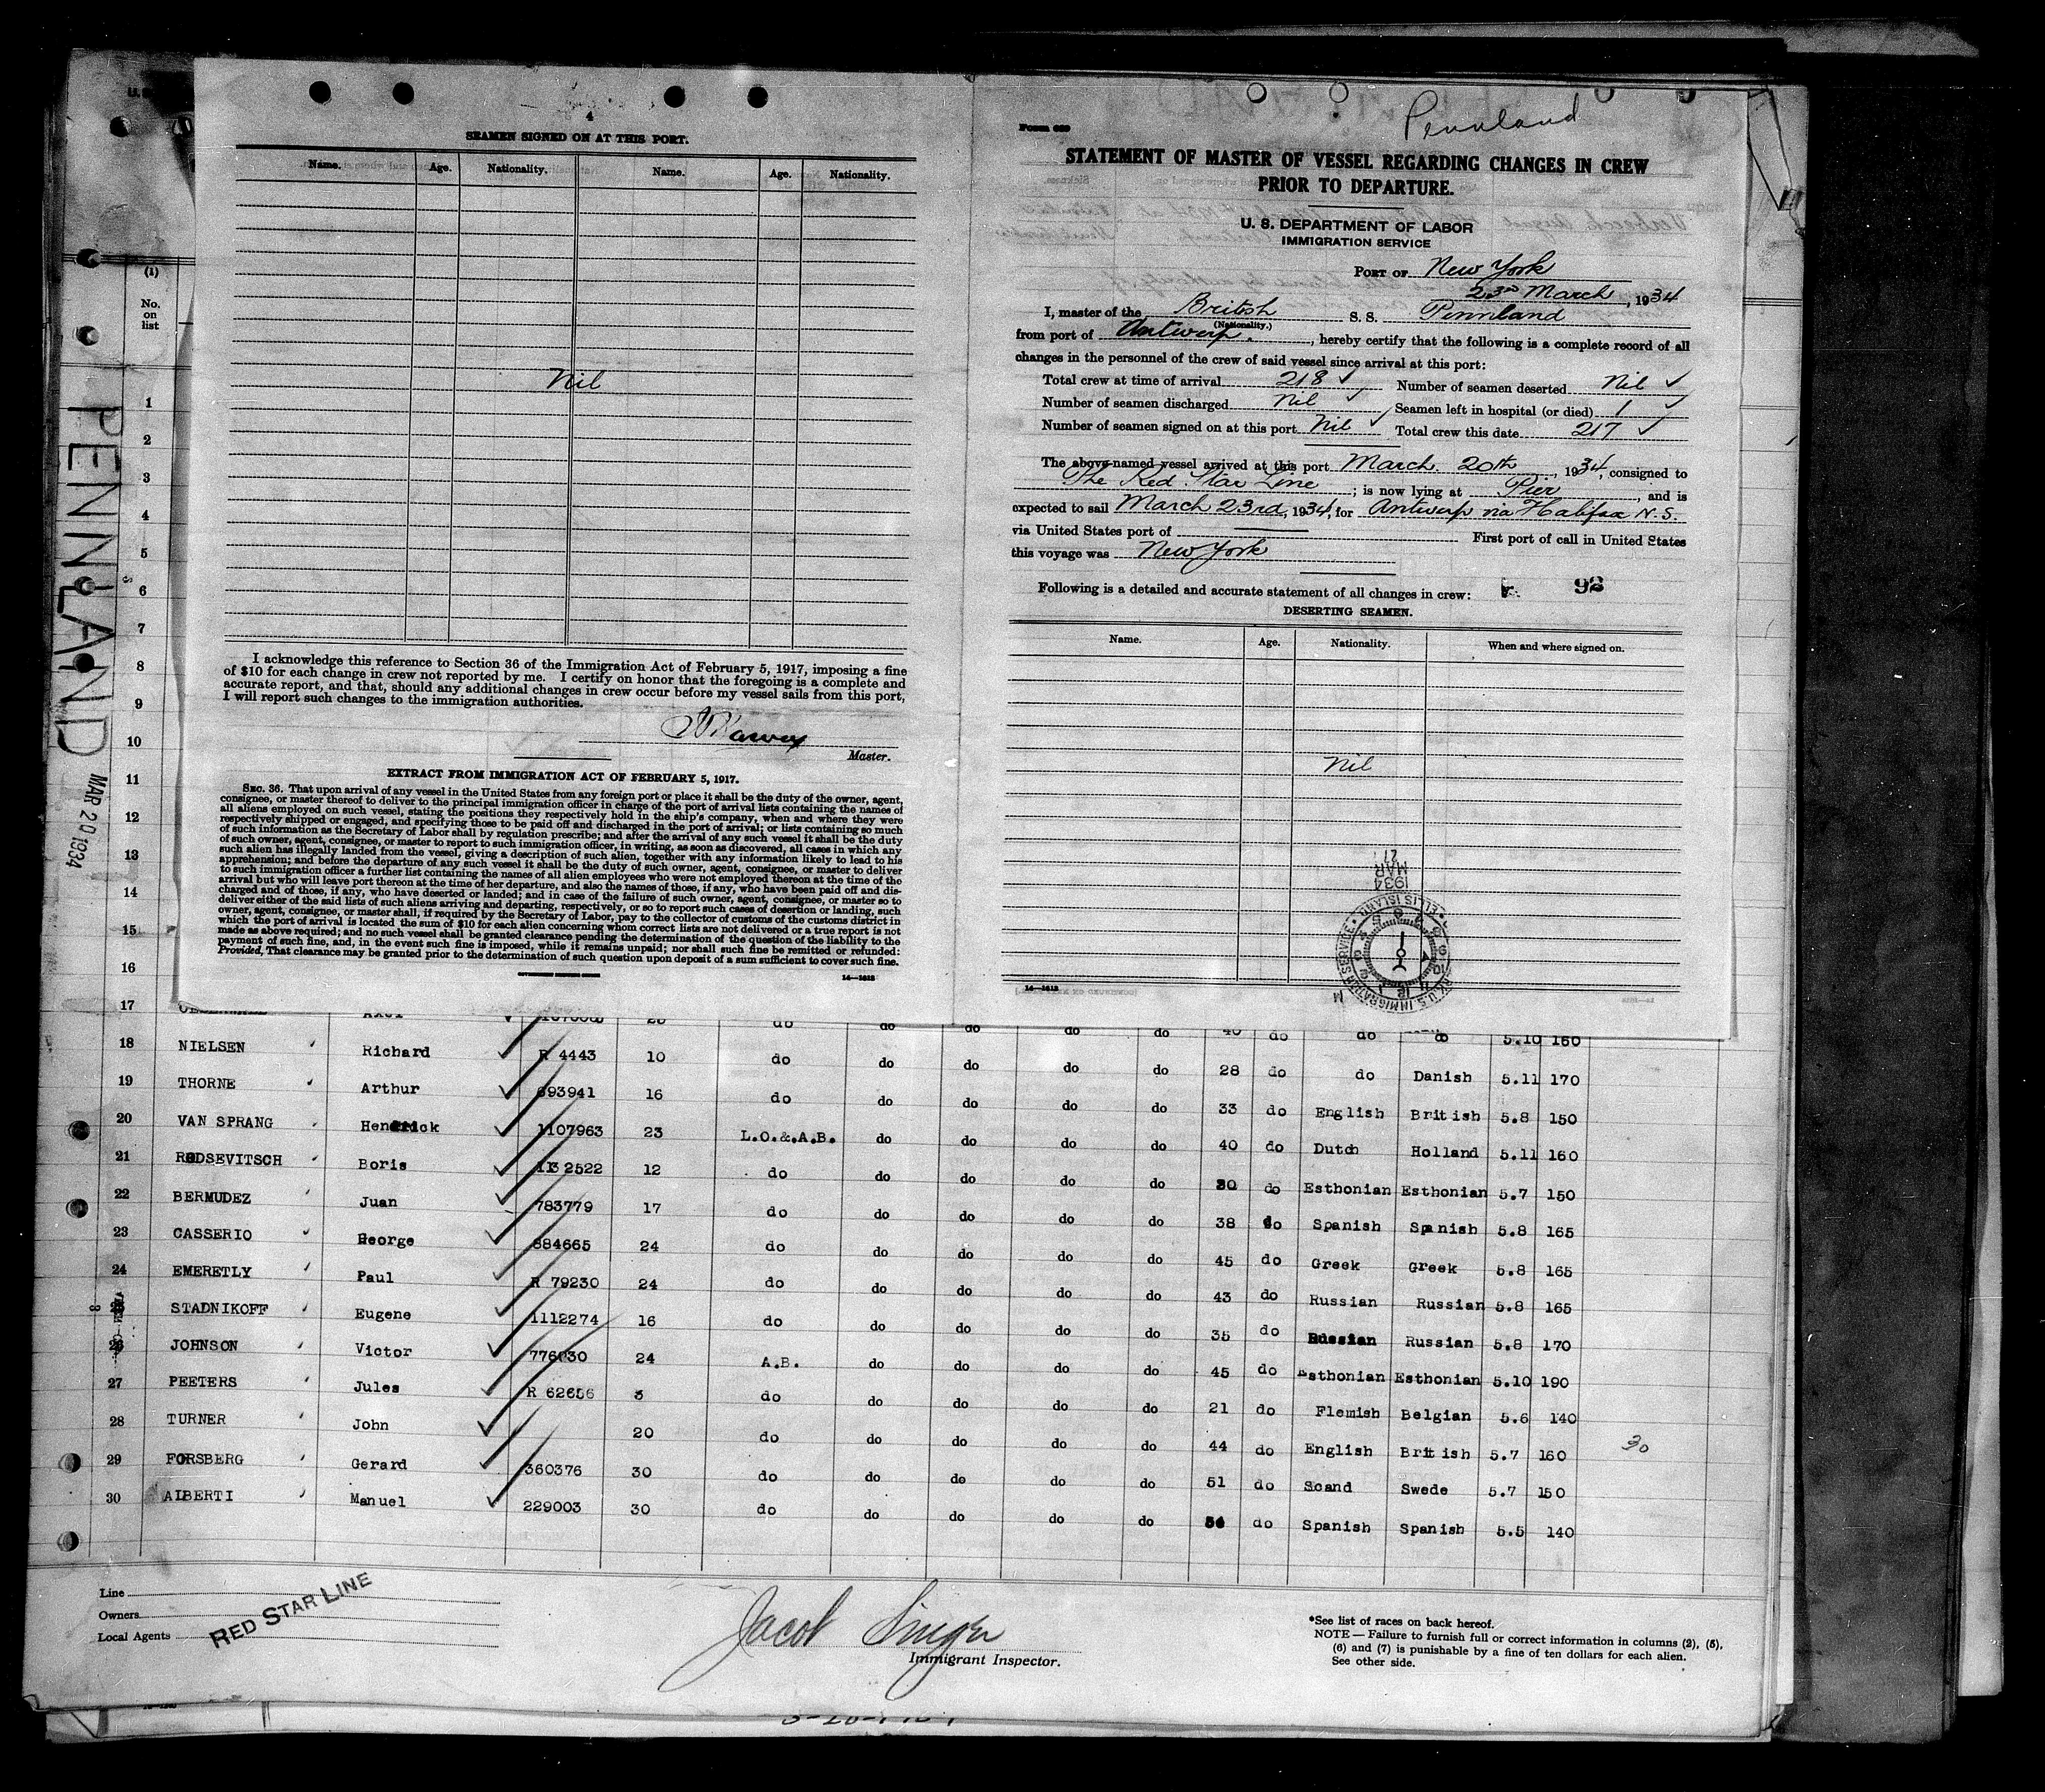 4
SEAMEN SIGNED ON AT THIS PORT.
Name. Age. Nationality. Name. Age. Nationality.
Nil
I acknowledge this reference to Section 36 of the Immigration Act of February 5, 1917, imposing a fine
of $10 for each change in crew not reported by me. I certify on honor that the foregoing is a complete and
accurate report, and that, should any additional changes in crew occur before my vessel sails from this port,
I will report such changes to the immigration authorities.
Master.
EXTRACT FROM IMMIGRATION ACT OF FEBRUARY 5, 1917.
SEC. 36. That upon arrival of any vessel in the United States from any foreign port or place it shall be the duty of the owner, agent,
consignee, or master thereof to deliver to the principal immigration officer in charge of the port of arrival lists containing the names of
all aliens employed on such vessel, stating the positions they respectively hold in the ship's company, when and where they were
respectively shipped or engaged, and specifying those to be paid off and discharged in the port of arrival; or lists containing so much
of such information as the Secretary of Labor shall by regulation prescribe; and after the arrival of any such vessel it shall be the duty
of such owner, agent, consignee, or master to report to such immigration officer, in writing, as soon as discovered, all cases in which any
such alien has illegally landed from the vessel, giving a description of such alien, together with any information likely to lead to his
apprehension; and before the departure of any such vessel it shall be the duty of such owner, agent, consignee, or master to deliver
to such immigration officer a further list containing the names of all alien employees who were not employed thereon at the time of the
arrival but who will leave port thereon at the time of her departure, and also the names of those, if any, who have been paid off and dis-
charged and of those, if any, who have deserted or landed; and in case of the failure of such owner, agent, consignee, or master so to
deliver either of the said lists of such aliens arriving and departing, respectively, or so to report such cases of desertion or landing, such
owner, agent, consignee, or master shall, if required by the Secretary of Labor, pay to the collector of customs of the customs district in
which the port of arrival is located the sum of $10 for each alien concerning whom correct lists are not delivered or a true report is not
made as above required; and no such vessel shall be granted clearance pending the determination of the question of the liability to the
payment of such fine, and, in the event such fine is imposed, while it remains unpaid; nor shall such fine be remitted or refunded:
Provided, That clearance may be granted prior to the determination of such question upon deposit of a sum sufficient to cover such fine.
14—1613
Pennland
Form 689
STATEMENT OF MASTER OF VESSEL REGARDING CHANGES IN CREW
PRIOR TO DEPARTURE.
U. S. DEPARTMENT OF LABOR
IMMIGRATION SERVICE
PORT OF New York
23rd March, 1934
I, master of the British S. S. Pennland
(Nationality.)
from port of Antwerp., hereby certify that the following is a complete record of all
changes in the personnel of the crew of said vessel since arrival at this port:
Total crew at time of arrival 218 ✓ Number of seamen deserted Nil ✓
Number of seamen discharged Nil ✓ Seamen left in hospital (or died) 1 ✓
Number of seamen signed on at this port Nil ✓ Total crew this date 217 ✓
The above-named vessel arrived at this port March. 20th, 1934, consigned to
The Red Star Line; is now lying at Pier, and is
expected to sail March 23rd, 1934, for Antwerp via Halifax N.S.
via United States port of First port of call in United States
this voyage was New York
Following is a detailed and accurate statement of all changes in crew: 92
DESERTING SEAMEN.
Name. Age. Nationality. When and where signed on.
Nil
MAR 27 1934
U.S. IMMIGRATION SERVICE ELLIS ISLAND
14—1613
PENNLAND
MAR 20 1934
(1)
No.
on
list
1
2
3
4
5
6
7
8
9
10
11
12
13
14
15
16
17 Axel do do do do do 40 do do do 5.10 160
18 NIELSEN Richard R 4443 10 do do do do do 28 do do Danish 5.11 170
19 THORNE Arthur 693941 16 do do do do do 33 do English British 5.8 150
20 VAN SPRANG Hendrick 1107963 23 L.O.&.A.B. do do do do 40 do Dutch Holland 5.11 160
21 RODSEVITSCH Boris 1132522 12 do do do do do 30 do Esthonian Esthonian 5.7 150
22 BERMUDEZ Juan 783779 17 do do do do do 38 do Spanish Spanish 5.8 165
23 CASSERIO George 884665 24 do do do do do 45 do Greek Greek 5.8 165
24 EMERETLY Paul R 79230 24 do do do do do 43 do Russian Russian 5.8 165
25 STADNIKOFF Eugene 1112274 16 do do do do do 35 do Russian Russian 5.8 170
26 JOHNSON Victor 776030 24 A.B. do do do do 45 do Esthonian Esthonian 5.10 190
27 PEETERS Jules R 62656 3 do do do do do 21 do Flemish Belgian 5.6 140
28 TURNER John 20 do do do do do 44 do English British 5.7 160 30
29 FORSBERG Gerard 360376 30 do do do do do 51 do Scand Swede 5.7 150
30 ALBERTI Manuel 229003 30 do do do do do do Spanish Spanish 5.5 140
Line
Owners
Local Agents RED STAR LINE
Jacob Singer
Immigrant Inspector.
*See list of races on back hereof.
NOTE — Failure to furnish full or correct information in columns (2), (5),
(6) and (7) is punishable by a fine of ten dollars for each alien.
See other side.